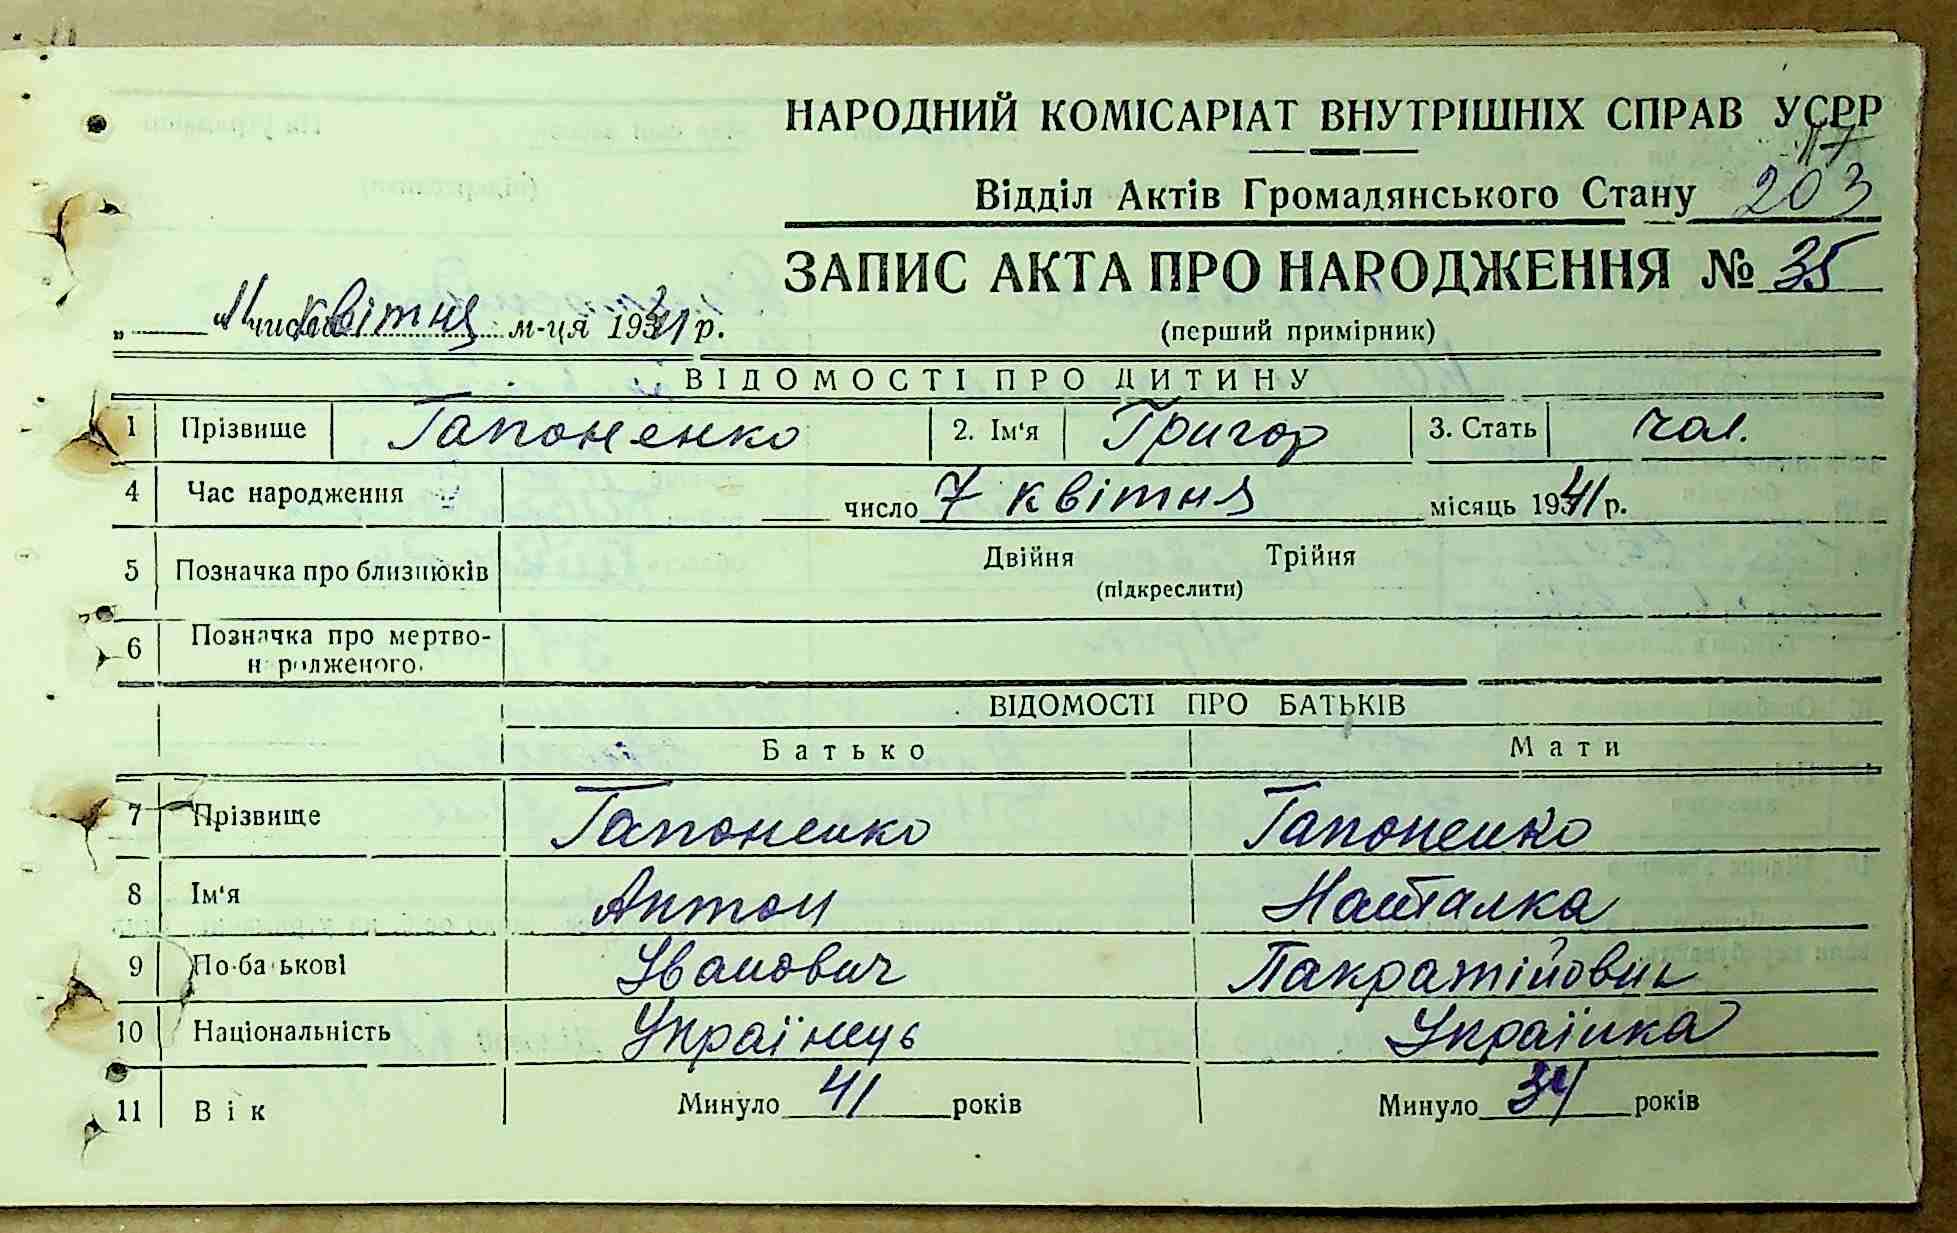 НАРОДНИЙ КОМІСАРІАТ ВНУТРІШНІХ СПРАВ УСРР
117
Відділ Актів Громадянського Стану 203
ЗАПИС АКТА ПРО НАРОДЖЕННЯ № 35
„ числа квітня м-ця 1941 р.
(перший примірник)
ВІДОМОСТІ ПРО ДИТИНУ
1 Прізвище Гапоненко 2. Ім'я Григор 3. Стать чол.
4 Час народження число 7 квітня місяць 1941 р.
5 Позначка про близнюків Двійня Трійня
(підкреслити)
6 Позначка про мертво-
н родженого.
ВІДОМОСТІ ПРО БАТЬКІВ
Батько Мати
7 Прізвище Гапоненко Гапоненко
8 Ім'я Антон Наталка
9 По-ба ькові Іванович Пакратійовн
10 Національність Українець Українка
11 Вік Минуло 41 років Минуло 34 років